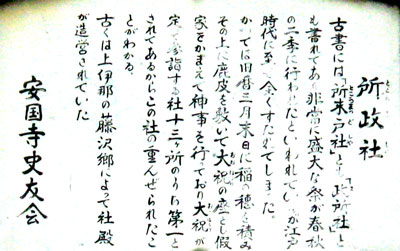 所政社
古書には「所末戸社」とも「政所社」と
も書れてあり非常に盛大な祭が春秋
の二季に行われたといわれているが江戸
時代に至って全くすたれてしまった。
かつては旧暦三月末日に稲の穂を積み
その上に鹿皮を敷いて大祝の座とし仮
家をかまえて神事を行ており大祝が
定って参詣する社十三ヶ所のうち第一と
されてあるからこの社の重んぜられたこ
とがわかる。
古くは上伊那の藤沢郷によって社殿
が造営されていた
安国寺史友会